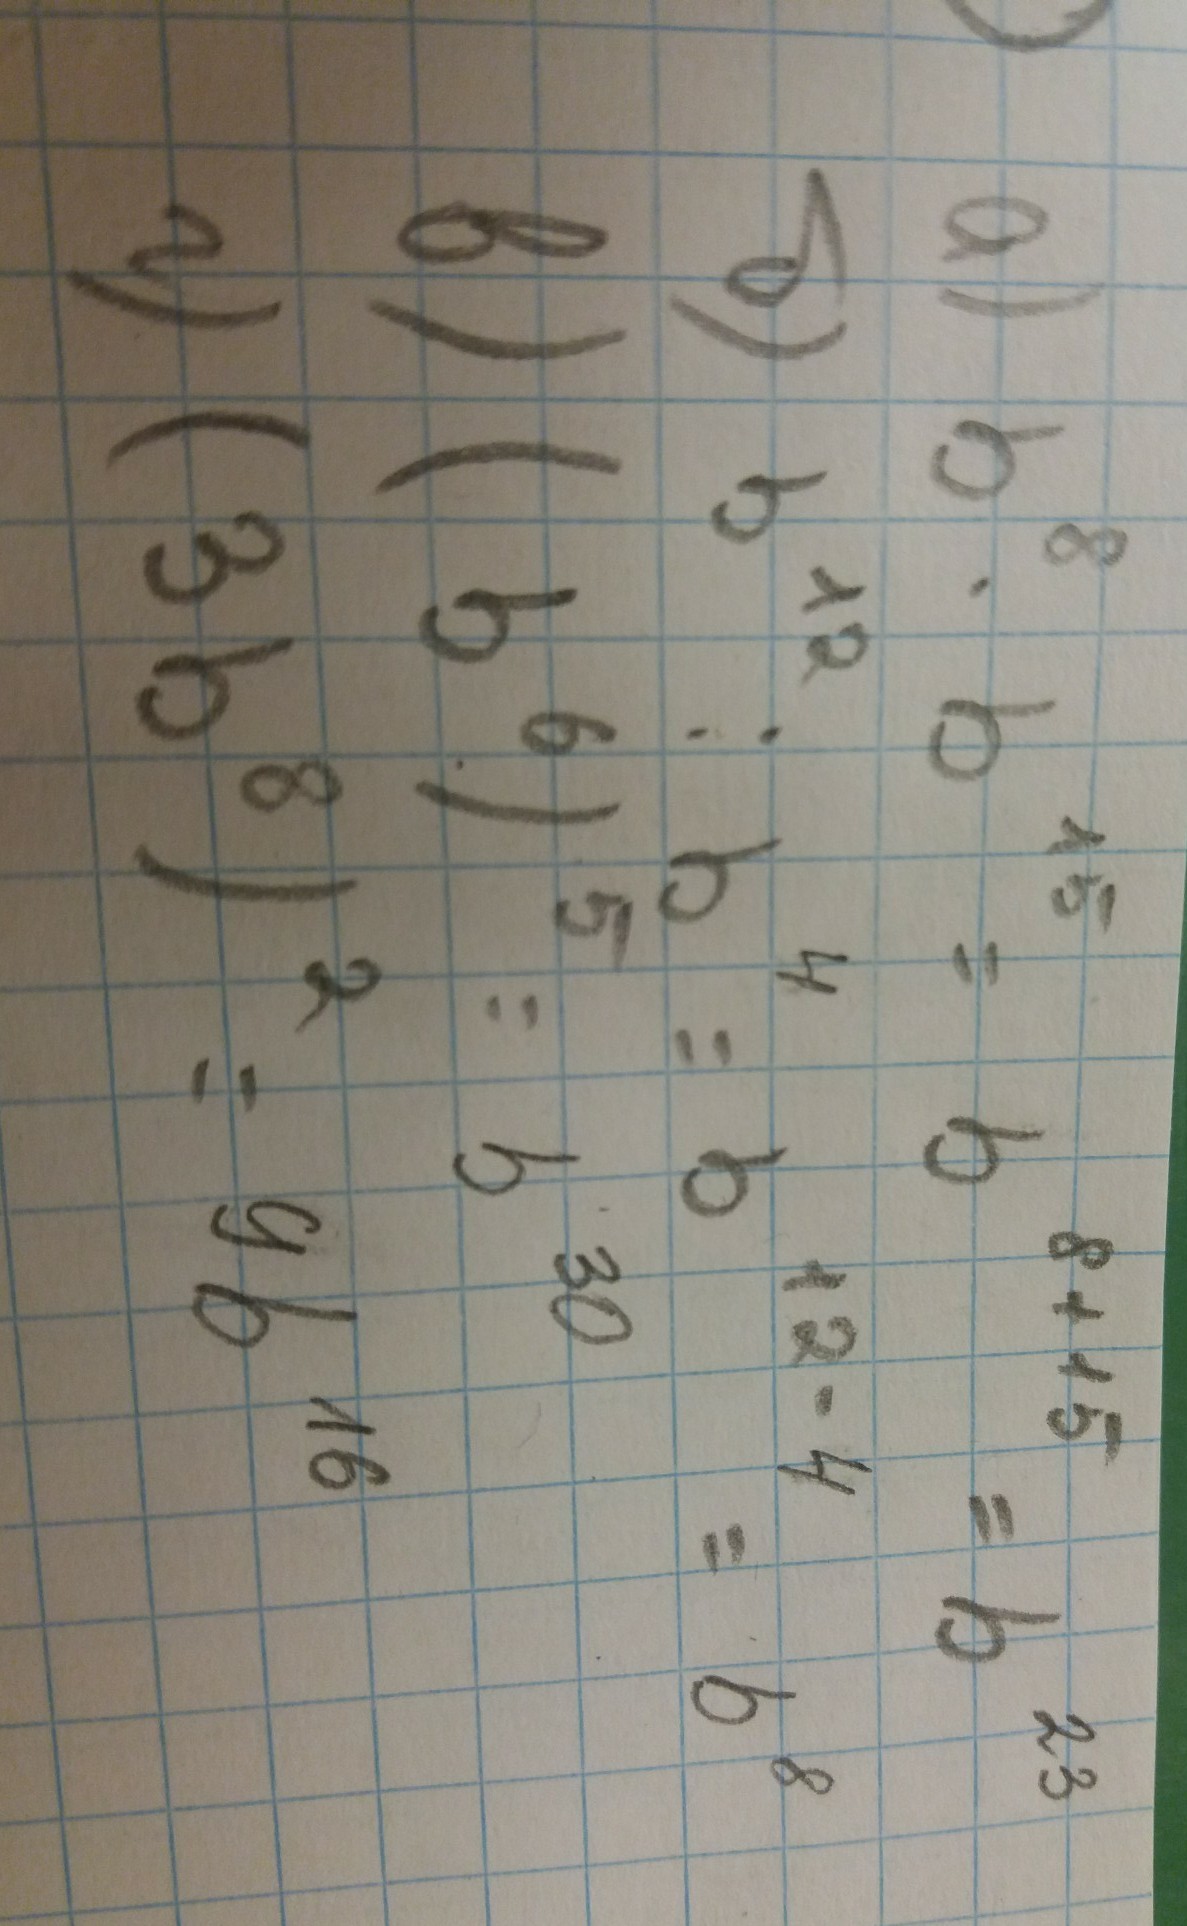 а) b⁸ · b¹⁵ = b⁸⁺¹⁵ = b²³
б) b¹² : b⁴ = b¹²⁻⁴ = b⁸
в) (b⁶)⁵ = b³⁰
г) (3b⁸)² = 9b¹⁶